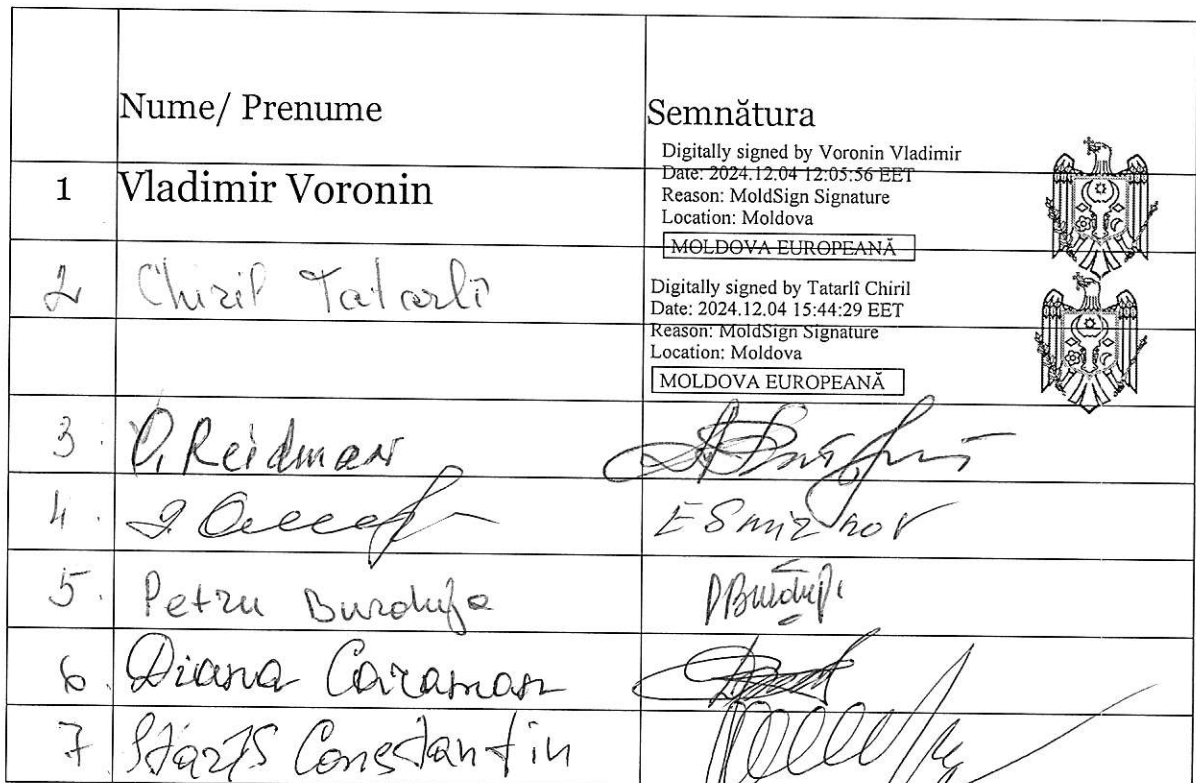 Nume/ Prenume
Semnătura
1
Vladimir Voronin
Digitally signed by Voronin Vladimir
Date: 2024.12.04 12:05:56 EET
Reason: MoldSign Signature
Location: Moldova
MOLDOVA EUROPEANĂ
2
Chiril Tatarlî
Digitally signed by Tatarlî Chiril
Date: 2024.12.04 15:44:29 EET
Reason: MoldSign Signature
Location: Moldova
MOLDOVA EUROPEANĂ
3.
O. Reidman
4.
ESmirnov
5.
Petru Burduja
PBurduja
6.
Diana Caraman
7
Starîș Constantin